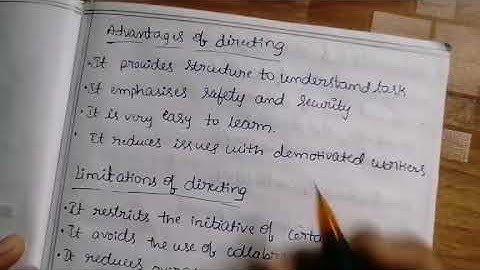 Advantages of directing
• It provides structure to understand task
• It emphasizes safety and security
• It is very easy to learn.
• It reduces issues with demotivated workers
Limitations of directing
• It restricts the initiative of
• It avoids the use of
• It reduces